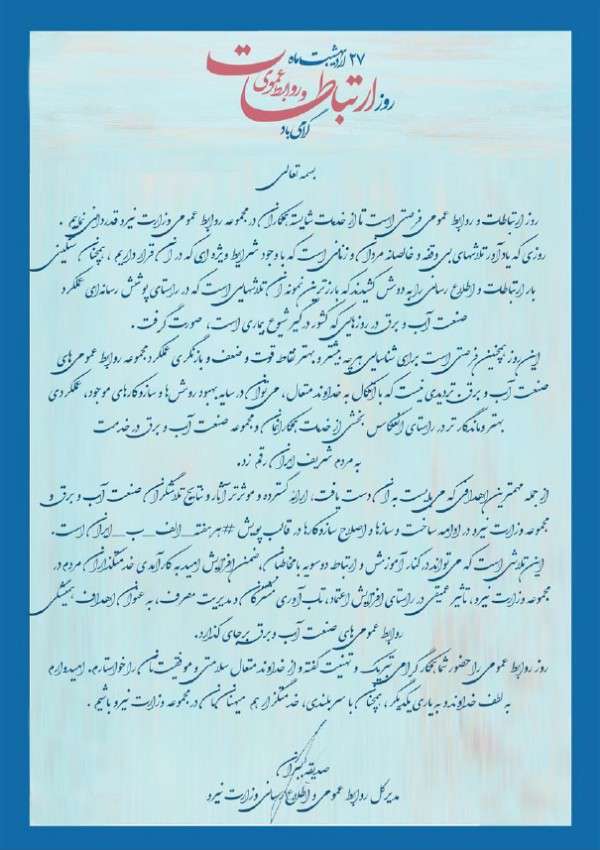 ۲۷ اردیبهشت ماه
روز ارتباطات
و روابط عمومی
گرامی باد
بسمه تعالی
روز ارتباطات و روابط عمومی فرصتی است تا از خدمات شایسته همکاران در مجموعه روابط عمومی وزارت نیرو قدردانی نماییم .
روزی که یادآور تلاشهای بی وقفه و خالصانه مردان و زنانی است که با وجود شرایط ویژه ای که در آن قرار داریم ، همچنان سنگینی
بار ارتباطات و اطلاع رسانی را به دوش کشیدند که بارزترین نمونه آن تلاشهایی است که در راستای پوشش رسانه ای عملکرد
صنعت آب و برق در روزهایی که کشور درگیر شیوع بیماری است، صورت گرفت .
این روز همچنین فرصتی است برای شناسایی هرچه بیشتر و بهتر نقاط قوت و ضعف و بازنگری عملکرد مجموعه روابط عمومی های
صنعت آب و برق. تردیدی نیست که با اتکال به خداوند متعال، می توان در سایه بهبود روش ها و سازوکارهای موجود، عملکردی
بهتر و ماندگارتر در راستای انعکاس بخشی از خدمات همکارانمان و مجموعه صنعت آب و برق در خدمت
به مردم شریف ایران رقم زد.
از جمله مهمترین اهدافی که می بایست به آن دست یافت، ارائه گسترده و موثرتر آثار و نتایج تلاشگران صنعت آب و برق و
مجموعه وزارت نیرو در ادامه ساخت و سازها و اصلاح سازوکارها در قالب پویش #هر_هفته_الف_ب_ایران است.
این تلاشی است که می تواند در کنار آموزش و ارتباط دوسویه با مخاطبان، ضمن افزایش امید به کارآمدی خدمتگذاران مردم در
مجموعه وزارت نیرو، تأثیر عمیقی در راستای افزایش اعتماد، تاب آوری مشترکان و مدیریت مصرف، به عنوان اهداف همیشگی
روابط عمومی های صنعت آب و برق برجای گذارد.
روز روابط عمومی را حضور شما همکار گرامی تبریک و تهنیت گفته و از خداوند متعال سلامتی و موفقیت تان را خواستارم. امیدوارم
به لطف خداوند و به یاری یکدیگر، همچنان با سربلندی، خدمتگزار هم میهنان مان در مجموعه وزارت نیرو باشیم .
صدیقه ببران
مدیرکل روابط عمومی و اطلاع رسانی وزارت نیرو